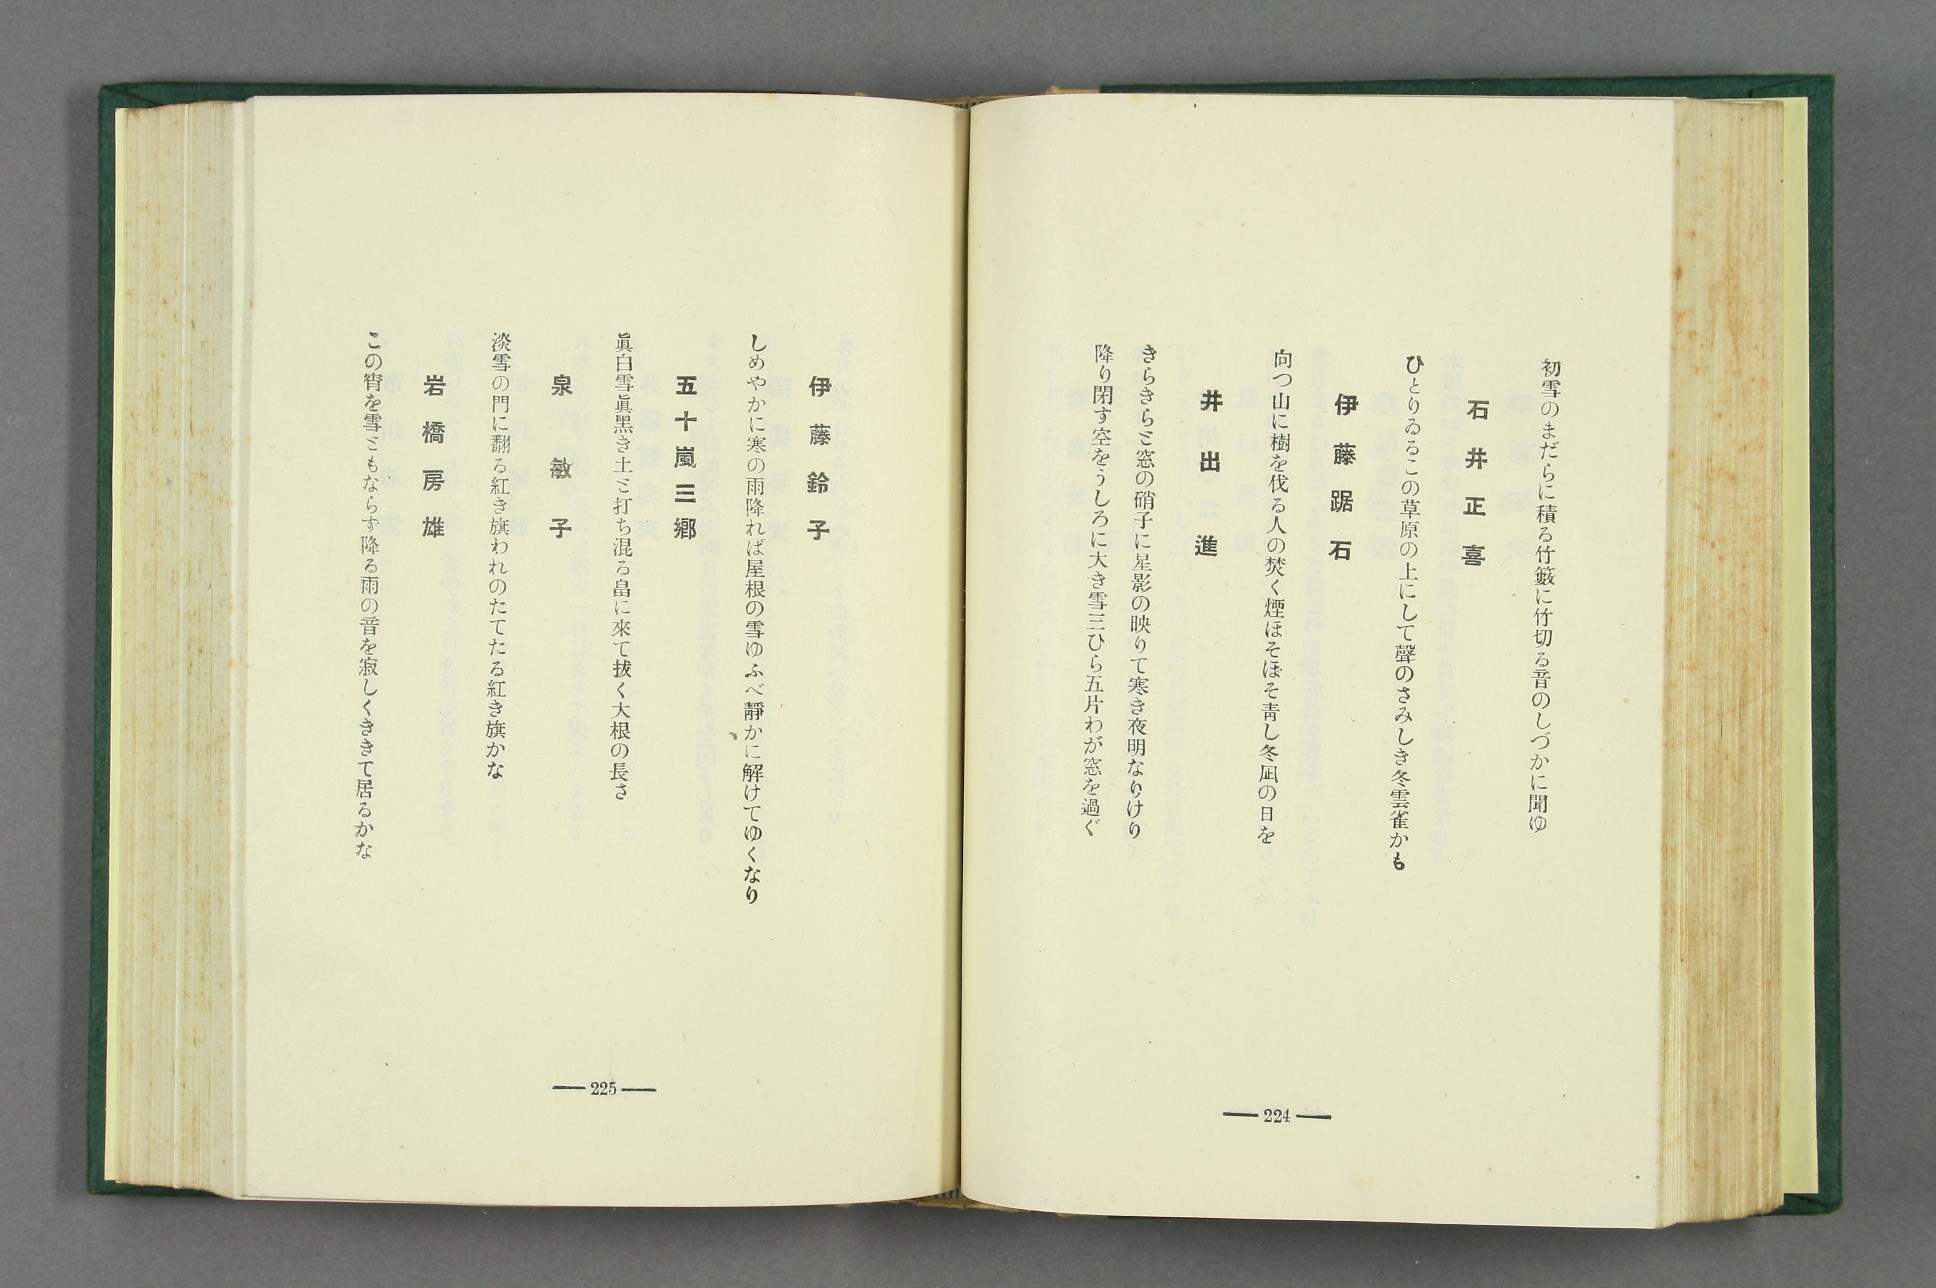 初雪のまだらに積る竹籔に竹切る音のしづかに聞ゆ
石井正喜
ひとりゐるこの草原の上にして聲のさみしき冬雲雀かも
伊藤踞石
向つ山に樹を伐る人の焚く煙ほそぼそ靑し冬凪の日を
井出進
きらきらと窓の硝子に星影の映りて寒き夜明なりけり
降り閉す空をうしろに大き雪三ひら五片わが窓を過ぐ
― 224 ―
伊藤鈴子
しめやかに寒の雨降れば屋根の雪ゆふべ靜かに解けてゆくなり
五十嵐三郷
眞白雪眞黑き土と打ち混る畠に來て拔く大根の長さ
泉敏子
淡雪の門に翻る紅き旗われのたてたる紅き旗かな
岩橋房雄
この宵を雪ともならず降る雨の音を寂しくききて居るかな
― 225 ―